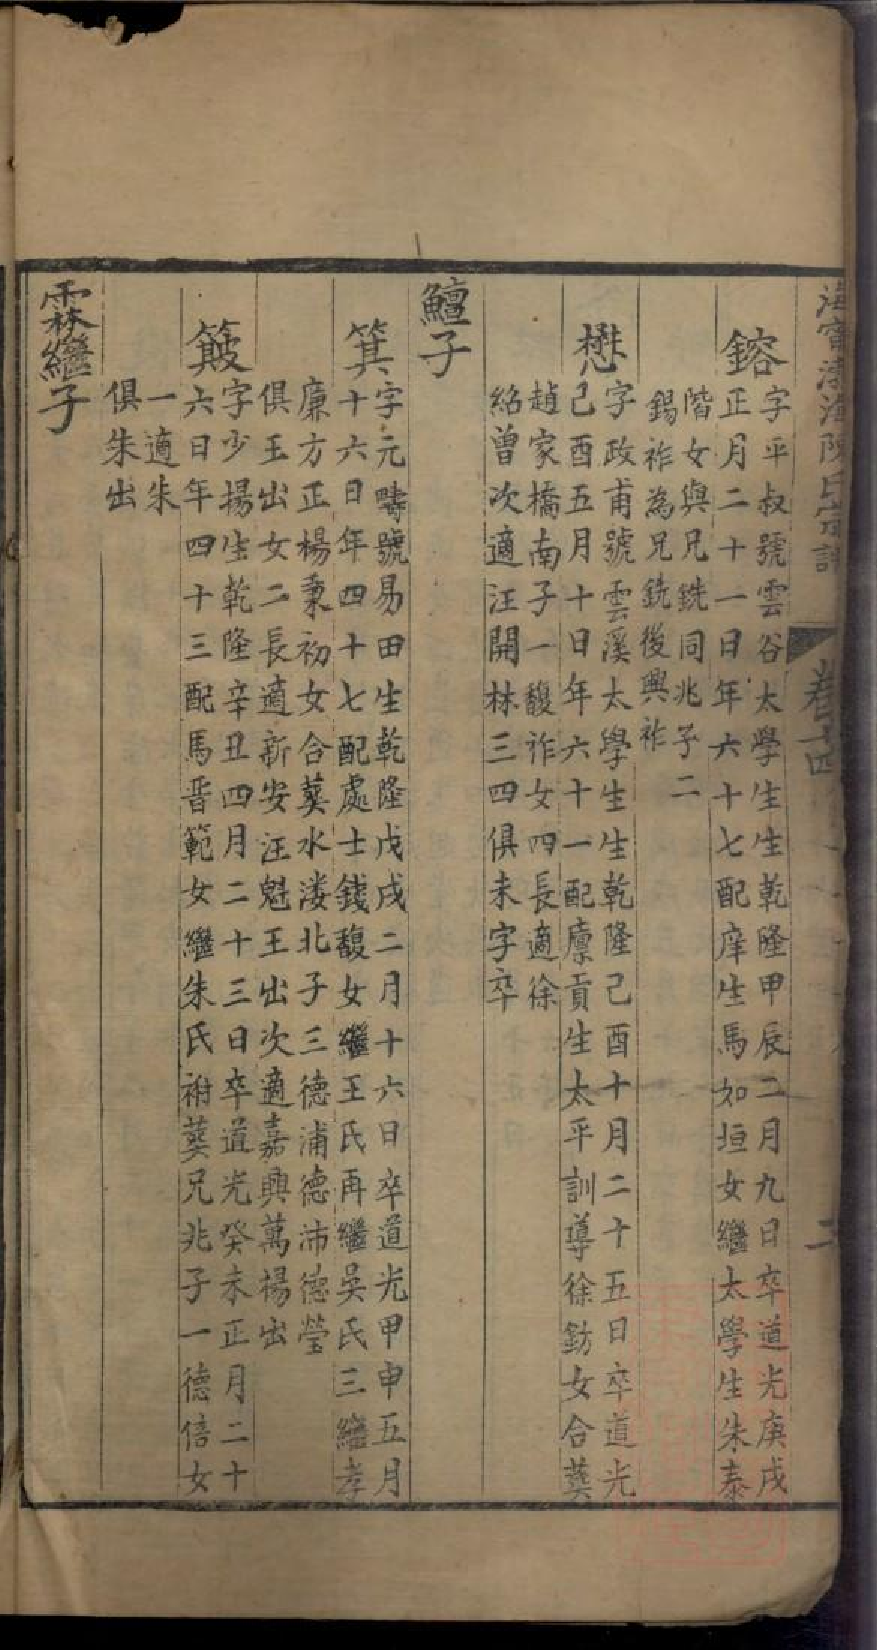 海寧渤海陳氏宗譜
卷十四
二
鎔
字平叔號雲谷太學生生乾隆甲辰二月九日卒道光庚戌
正月二十一日年六十七配庠生馬如垣女繼太學生朱泰
階女與兄銑同兆子二
錫祚為兄銑後興祚
懋
字政甫號雲溪太學生生乾隆己酉十月二十五日卒道光
己酉五月十日年六十一配廩貢生太平訓導徐鈁女合葬
趙家橋南子一馥祚女四長適徐
紹曾次適汪開林三四俱未字卒
鱣子
箕
字元疇號易田生乾隆戊戌二月十六日卒道光甲申五月
十六日年四十七配處士錢馥女繼王氏再繼吳氏三繼孝
廉方正楊秉初女合葬水漊北子三德浦德沛德瑩
俱王出女二長適新安汪魁王出次適嘉興萬楊出
簸
字少揚生乾隆辛丑四月二十三日卒道光癸未正月二十
六日年四十三配馬晋範女繼朱氏祔葬兄兆子一德倍女
一適朱
俱朱出
霖繼子